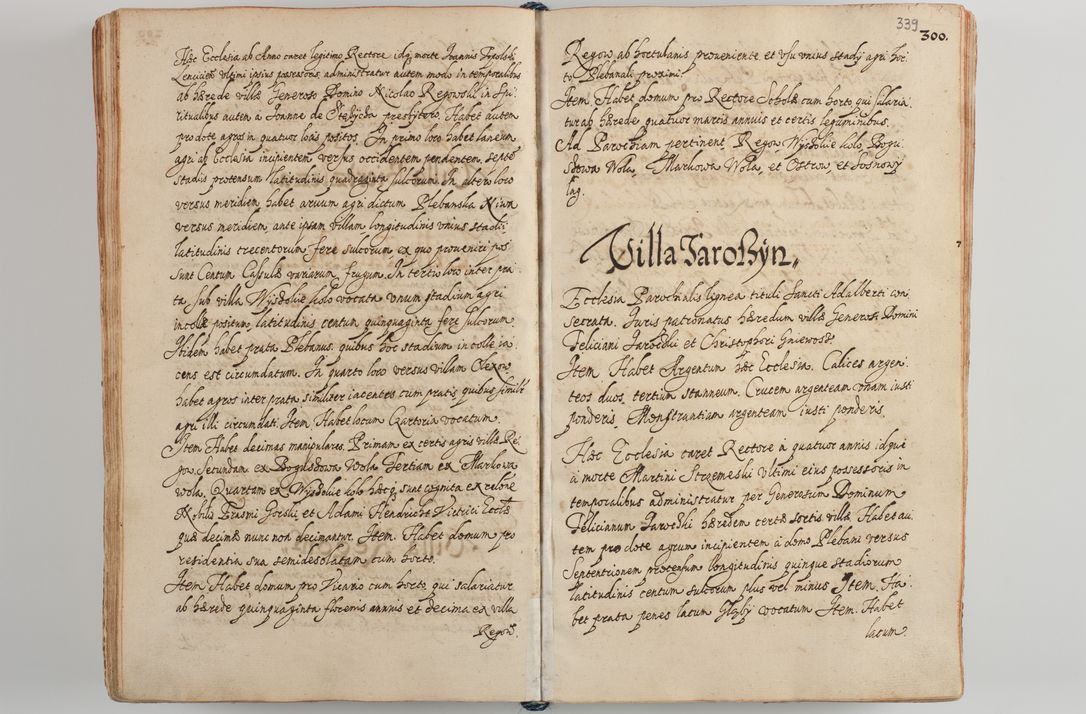 Hæc Ecclesia ab Anno caret legitimo Rectore idq́ morte Joannis
Lencicien̄ vltimi ipsius possessoris, administratur autem modo in temporalibus
ab hærede villæ Generoso Domino Nicolao Regowski in Spi-
ritualibus autem à Joanne de presbÿtero. Habet autem
pro dote agros in quatuor locis positos. In primo loco habet laneum
agri ab Ecclesia incipientem versus occidentem pendentem septē
stadijs protensum latitudinis quadraginta sulcorum. In altero loco
versus meridiem habet aruum agri dictum Plebanska Niwa
versus meridiem, ante ipsam villam longitudinis vnius stadij
latitudinis trecentorum fere sulcorum ex quo proueniri pos
sunt Centum Cassulæ variarum frugum. In tertio loco inter pra
ta sub villa kolo vocata vnum stadium agri
in colle positum, latitudinis centum quinquaginta fere sulcorum.
Ibidem habet prata Plebanus. quibus hoc stadium in colle ia
cens est circumdatum. In quarto loco versus villam
habet agros inter prata similiter iacentes cum pratis, quibus similē
agri illi circumdati. Item Habet locum Czartoria vocatum.
Item Habet decimas manipulares. Primam ex certis agris villæ Re
gow. Secundam ex Wola Tertiam ex Markowa
wola, Quartam ex kolo hæcq́ sunt cognita ex relōne
Nobilis Erasmi Gorski et Adami Hendricht Vitrici Eccl̄æ
quæ decimæ nunc non decimantur. Item. Habet domum pro
residentia sua semidesolatam cum horto.
Item Habet domum pro Vicario cum horto, qui salariatur
ab hærede quinquaginta florenis annuis et decima ex villa
Regow.
339
300.
Regow ab hortulanis proueniente et vsu vnius stadij agri hor
to Plebanali proximi.
Item. Habet domum pro Rectore Scholæ cum horto, qui salaria
tur ab hærede quatuor marcis annuis et certis leguminibus.
Ad Parochiam pertinent. Regow kolo, Bogu
Wola, Markowa Wola, et Ostrow, et Sosnowÿ
lag.
Villa JaroSzÿn
7
Ecclesia Parochialis lignea tituli Sancti Adalberti con
secrata. Juris patronatus hæredum villæ Generosi Domini
Feliciani et Christophori Gniewosz
Item. Habet Argentum hæc Ecclesia. Calices argen
teos duos. tertium stanneum. Crucem argenteam vnam iusti
ponderis. Monstrantiam argenteam iusti ponderis.
Hæc Ecclesia caret Rectore à quatuor annis idque
à morte Martini Strzemeski vltimi eius possessoris in
temporalibus administratur per Generosum Dominum
Felicianum hæredem certæ sortis villæ. Habet au
tem pro dote agrum incipientem à domo Plebani versus
Septentrionem protensum longitudinis quinque stadiorum
latitudinis centum sulcorum plus vel minus Item. Ha
bet prata penes lacum vocatum Item. Habet
lacum.